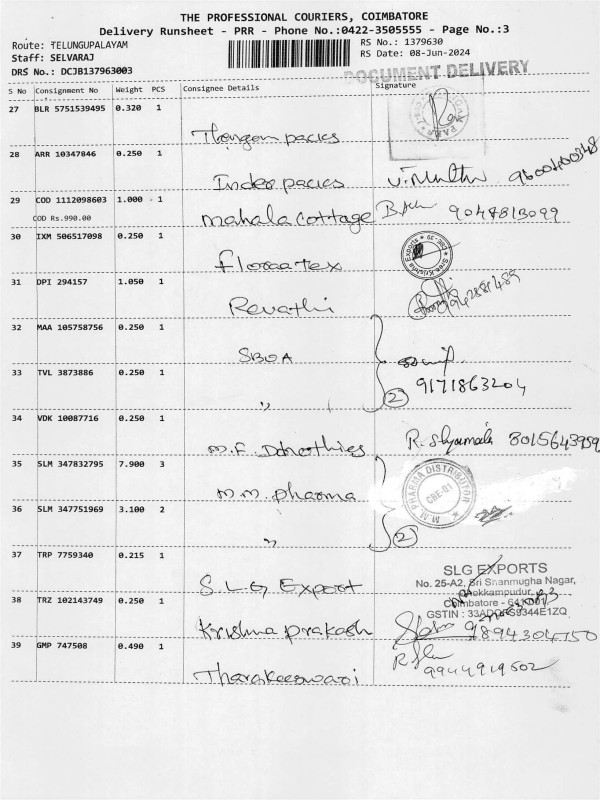 THE PROFESSIONAL COURIERS, COIMBATORE
Delivery Runsheet - PRR - Phone No.:0422-3505555 - Page No.:3
Route: TELUNGUPALAYAM
RS No.: 1379630
Staff: SELVARAJ
RS Date: 08-Jun-2024
DRS No.: DCJB137963003
DOCUMENT DELIVERY
S No Consignment No Weight PCS Consignee Details Signature
27 BLR 5751539495 0.320 1
28 ARR 10347846 0.250 1
Indeo pacies 9600400348
29 COD 1112098603 1.000 1
COD Rs.990.00
mahala cottage 9047813099
30 IXM 506517098 0.250 1
floraatex
31 DPI 294157 1.050 1
Revathi
32 MAA 105758756 0.250 1
SBOA
33 TVL 3873886 0.250 1
" 2 9171863204
34 VDK 10087716 0.250 1
R. Shyamala 8015643959
35 SLM 347832795 7.900 3
M.M. pharma
M.M. PHARMA DISTRIBUTOR
CBE-01
36 SLM 347751969 3.100 2
" 2
37 TRP 7759340 0.215 1
S.L.G Export
SLG EXPORTS
No. 25-A2, Sri Shanmugha Nagar,
Chokkampudur,
Coimbatore - 641 001
38 TRZ 102143749 0.250 1
Krishna prakash 9894304750
39 GMP 747508 0.490 1
Tharakeeswari 9944919502